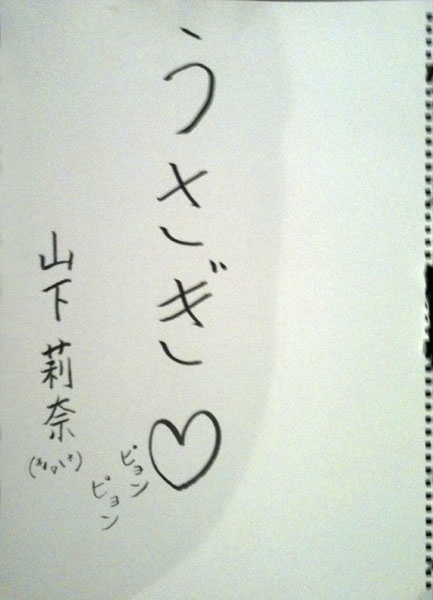 うさぎ♡
ピョン
ピョン
山下莉奈